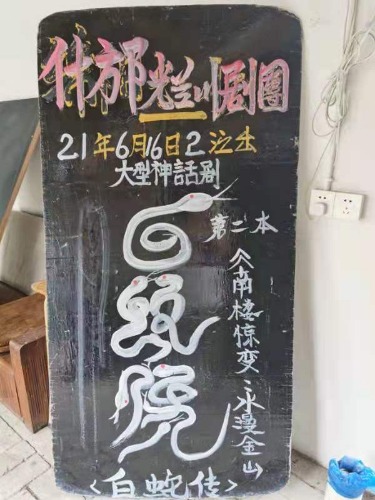 什邡光兰川剧團
21年6月16日2
大型神話剧
白蛇传
第二本
《南楼惊变·水漫金山
<白蛇传>